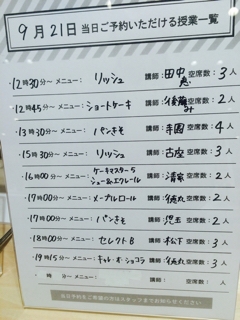 9月21日 当日ご予約いただける授業一覧
・12時30分〜 メニュー： リッシュ 講師：田中恵 空席数：3人
・12時45分〜 メニュー： ショートケーキ 講師：後藤み 空席数：2人
・13時30分〜 メニュー： パンきそ 講師： 空席数：4人
・15時30分〜 メニュー： リッシュ 講師：古座 空席数：3人
・16時00分〜 メニュー： ケーキマスター5 シュー&エクレール 講師：清家 空席数：2人
・17時00分〜 メニュー： メープルロール 講師： 空席数：2人
・17時00分〜 メニュー： パンきそ 講師：児玉 空席数：2人
・18時00分〜 メニュー： セレクトB 講師：松下 空席数：3人
・19時15分〜 メニュー： キャレ・オ・ショコラ 講師： 空席数：3人
・ 時 分〜 メニュー： 講師： 空席数： 人
当日予約をご希望の方はスタッフまでお知らせください！